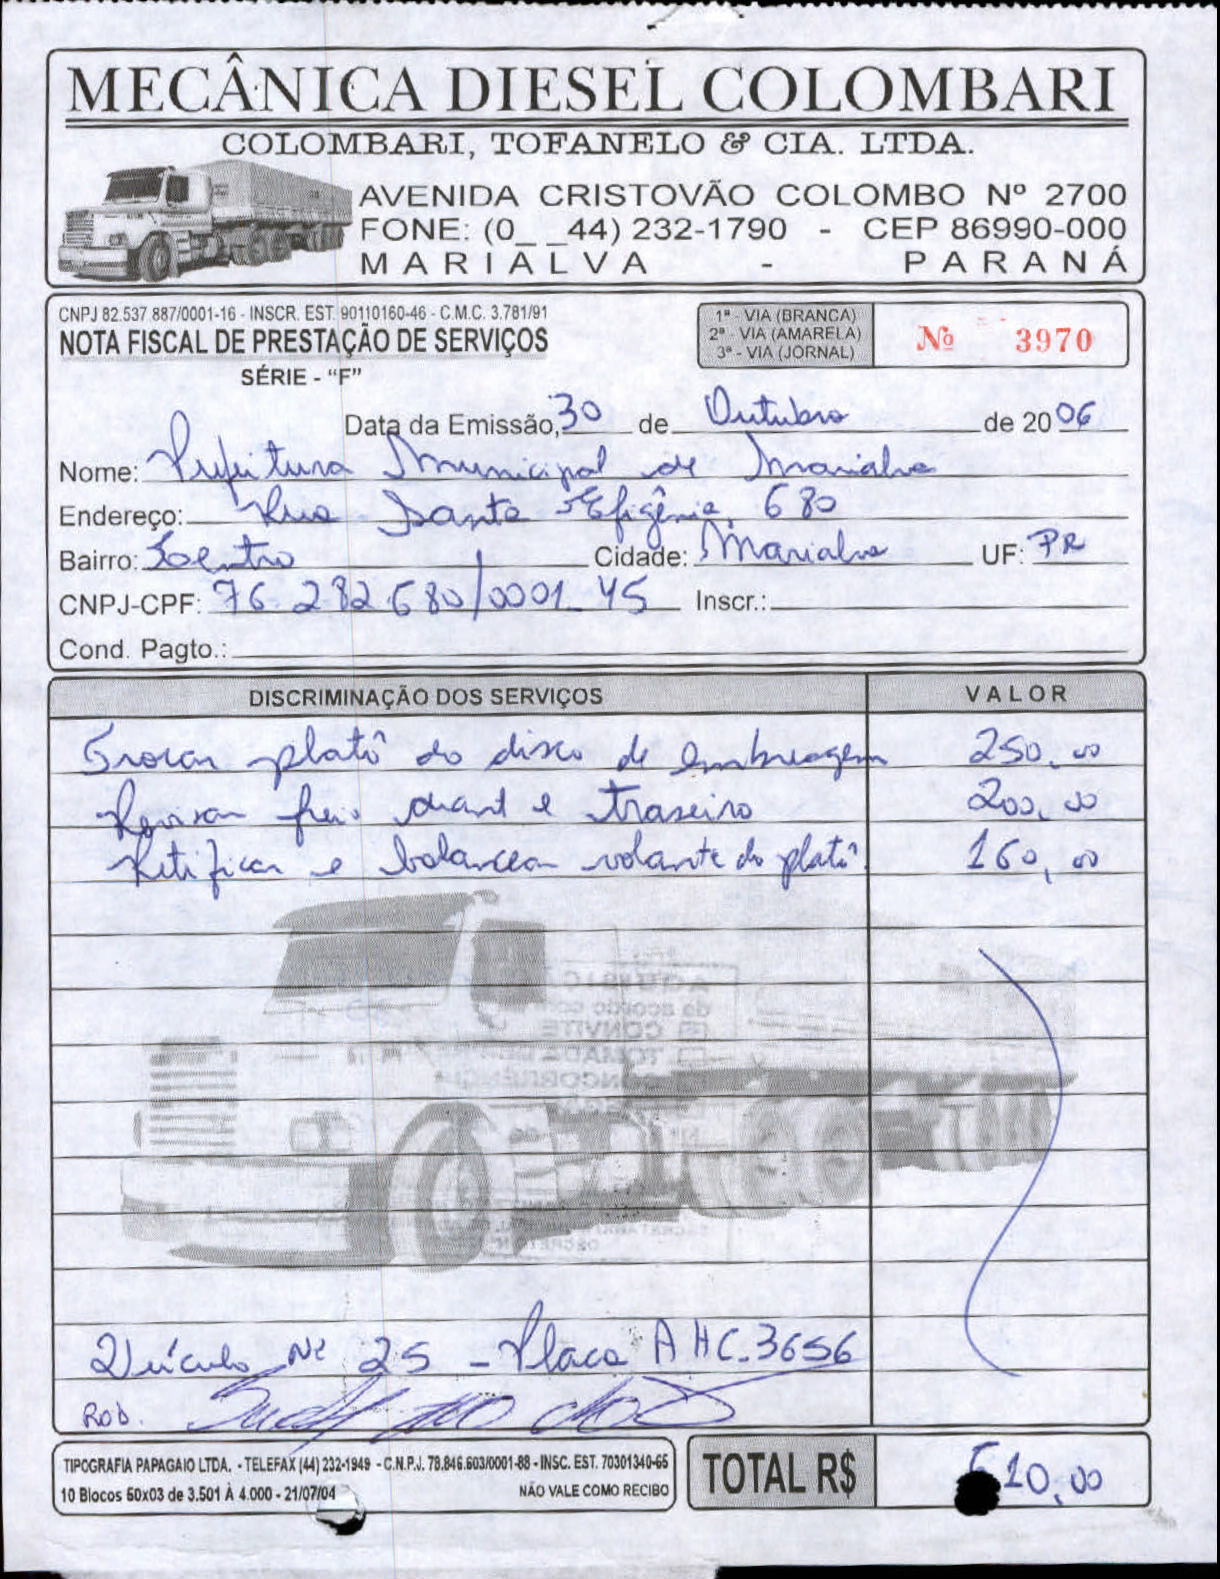 MECÂNICA DIESEL COLOMBARI
COLOMBARI, TOFANELO & CIA. LTDA.
AVENIDA CRISTOVÃO COLOMBO Nº 2700
FONE: (0_ _44) 232-1790 - CEP 86990-000
MARIALVA - PARANÁ
CNPJ 82.537.887/0001-16 - INSCR. EST. 90110160-46 - C.M.C. 3.781/91
NOTA FISCAL DE PRESTAÇÃO DE SERVIÇOS
SÉRIE - “F”
1ª - VIA (BRANCA)
2ª - VIA (AMARELA)
3ª - VIA (JORNAL)
Nº 3970
Data da Emissão, 30 de Outubro de 2006
Nome: Prefeitura Municipal de Marialva
Endereço: Rua Santa Efigênia, 680
Bairro: Centro Cidade: Marialva UF: PR
CNPJ-CPF: 76.282.680/0001-45 Inscr.:
Cond. Pagto.:
DISCRIMINAÇÃO DOS SERVIÇOS VALOR
Trocar platô do disco de embreagem 250,00
Revisar freio diant e traseiro 200,00
Retificar e balancear volante do platô 160,00
AQUISIÇ
de acordo com
CONVITE
TOMADA DE
CONCORRÊNCIA
Veículo Nº 25 - Placa AHC-3656
Rod.
TIPOGRAFIA PAPAGAIO LTDA. - TELEFAX (44) 232-1949 - C.N.P.J. 78.846.603/0001-88 - INSC. EST. 70301340-65
10 Blocos 50x03 de 3.501 À 4.000 - 21/07/04 NÃO VALE COMO RECIBO
TOTAL R$ 610,00